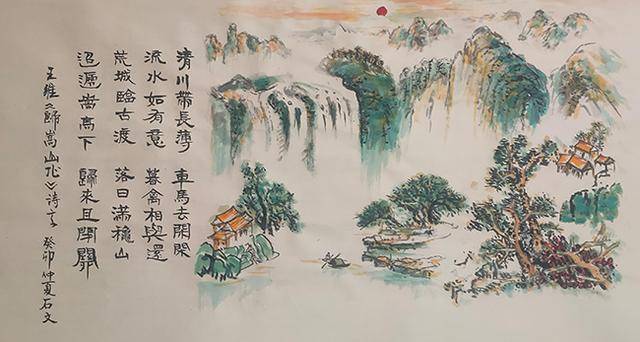 清川帶長薄 車馬去閑閑
流水如有意 暮禽相與還
荒城臨古渡 落日滿穐山
迢遞嵩高下 歸來且閉關
王維《歸嵩山作》詩 癸卯仲夏石文